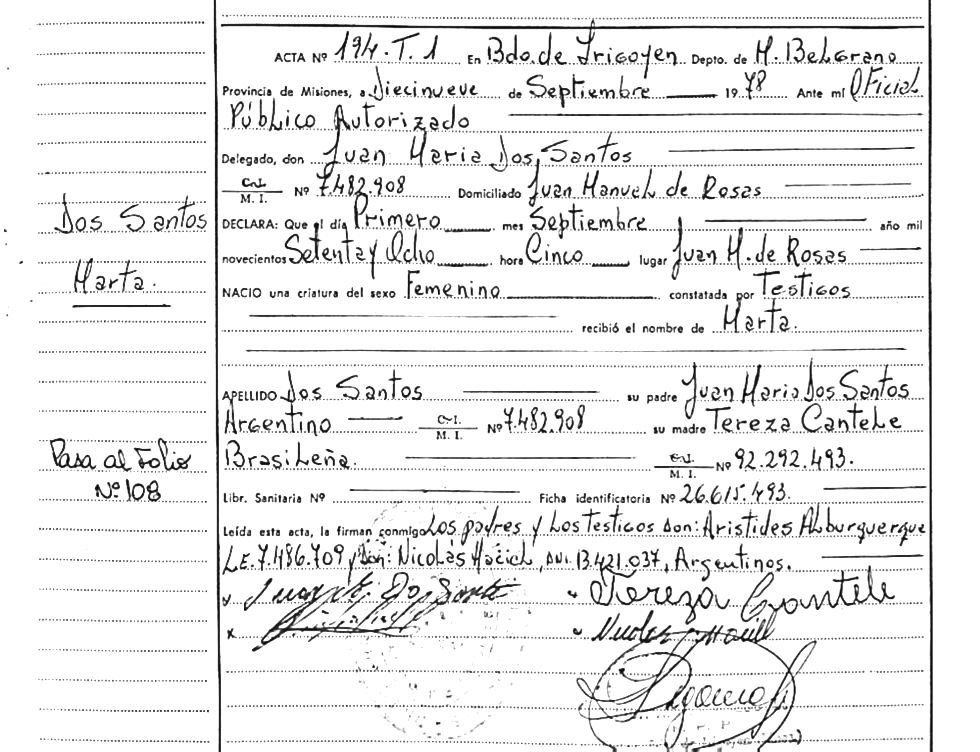 ACTA Nº 194-T.1 En Bdo. de Irigoyen Depto. de M. Belgrano
Provincia de Misiones, a Diecinueve de Septiembre 1978 Ante mí Oficial
Público Autorizado
Delegado, don Juan Maria Dos Santos
C.I. M. I. Nº 7.482.908 Domiciliado Juan Manuel de Rosas
Dos Santos
DECLARA: Que el día Primero mes Septiembre año mil
novecientos Setenta y Ocho hora Cinco lugar Juan M. de Rosas
Marta.
NACIO una criatura del sexo Femenino constatada por Testigos
recibió el nombre de Marta.
APELLIDO Dos Santos su padre Juan Maria Dos Santos
Argentino C.I. M. I. Nº 7.482.908 su madre Tereza Cantele
Pasa al Folio
Nº 108
Brasileña. C.I. M. I. Nº 92.292.493.
Libr. Sanitaria Nº Ficha identificatoria Nº 26.615.493.
Leída esta acta, la firman conmigo Los padres y Los testigos don: Aristides Alburguerque
L.E. 7.486.709 y Don: Nicolás Maciel, DNI. 13.421.037, Argentinos.
x Juan M Dos Santos x Tereza Cantele
x